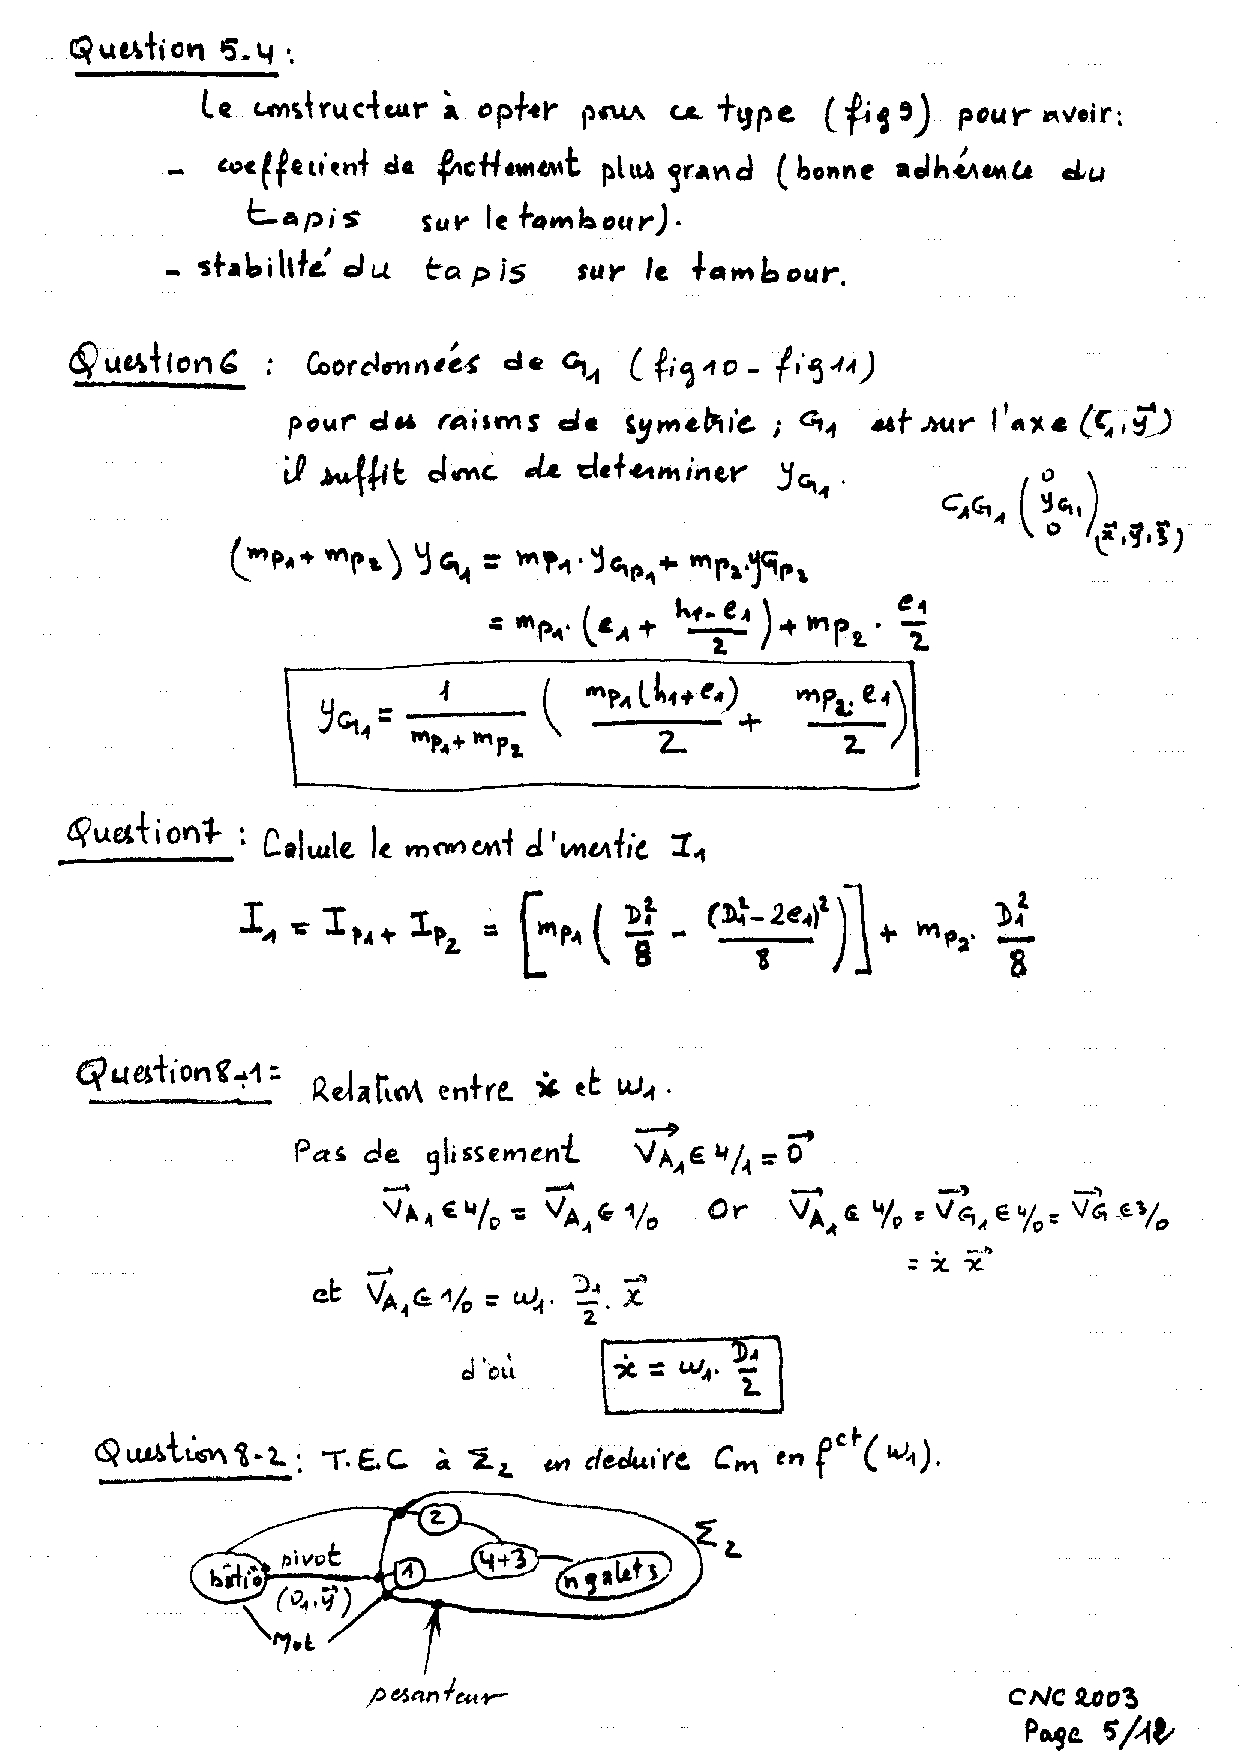 Question 5.4 :
Le constructeur à opter pour ce type (fig 9) pour avoir:
- coefferient de frottement plus grand (bonne adhérence du
tapis sur le tambour).
- stabilité du tapis sur le tambour.
Question 6 : Coordonnées de G₁ (fig 10 - fig 11)
pour des raisons de symetrie ; G₁ est sur l'axe (C₁, y⃗)
il suffit donc de determiner y_G₁. C₁G₁ (0 y_G₁ 0)(x⃗, y⃗, z⃗)
(mp₁ + mp₂) y_G₁ = mp₁ . y_Gp₁ + mp₂ . y_Gp₂
= mp₁ . (e₁ + (h₁ - e₁)/2) + mp₂ . e₁/2
y_G₁ = 1/(mp₁ + mp₂) ( mp₁(h₁ + e₁)/2 + mp₂ . e₁/2 )
Question 7 : Calcule le moment d'inertie I₁
I₁ = I_P₁ + I_P₂ = [mp₁ ( D₁²/8 - (D₁² - 2e₁)²/8 )] + mp₂ . D₁²/8
Question 8-1 = Relation entre ẋ et ω₁.
Pas de glissement V⃗A₁∈4/1 = 0⃗
V⃗A₁∈4/0 = V⃗A₁∈1/0 Or V⃗A₁∈4/0 = V⃗G₁∈4/0 = V⃗G∈3/0
= ẋ x⃗
et V⃗A₁∈1/0 = ω₁ . D₁/2 . x⃗
d'où ẋ = ω₁ . D₁/2
Question 8-2 : T.E.C à Σ₂ en deduire Cm en fct (ω₁).
2
Σ₂
bâtio pivot 1 4+3 n galets
(O₁, y⃗)
Mot
pesanteur
CNC 2003
Page 5/12